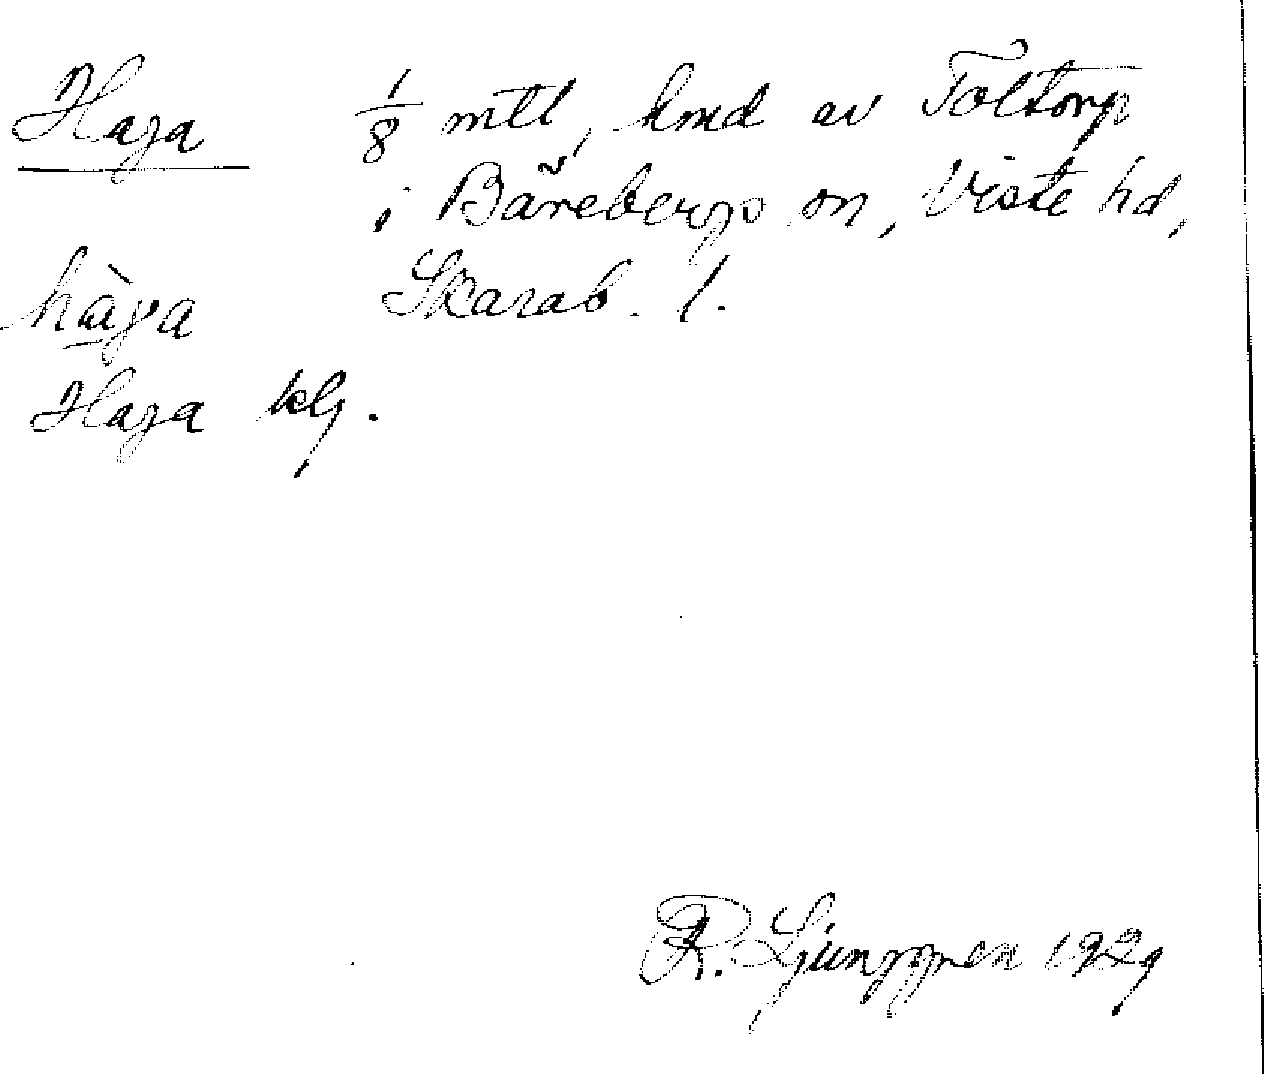 Haga 1/8 mtl, hmd av Toltorp
i Bärebergs sn, Viste hd,
hàga Skarab. l.
Haga klg.
R. Ljunggren 1929